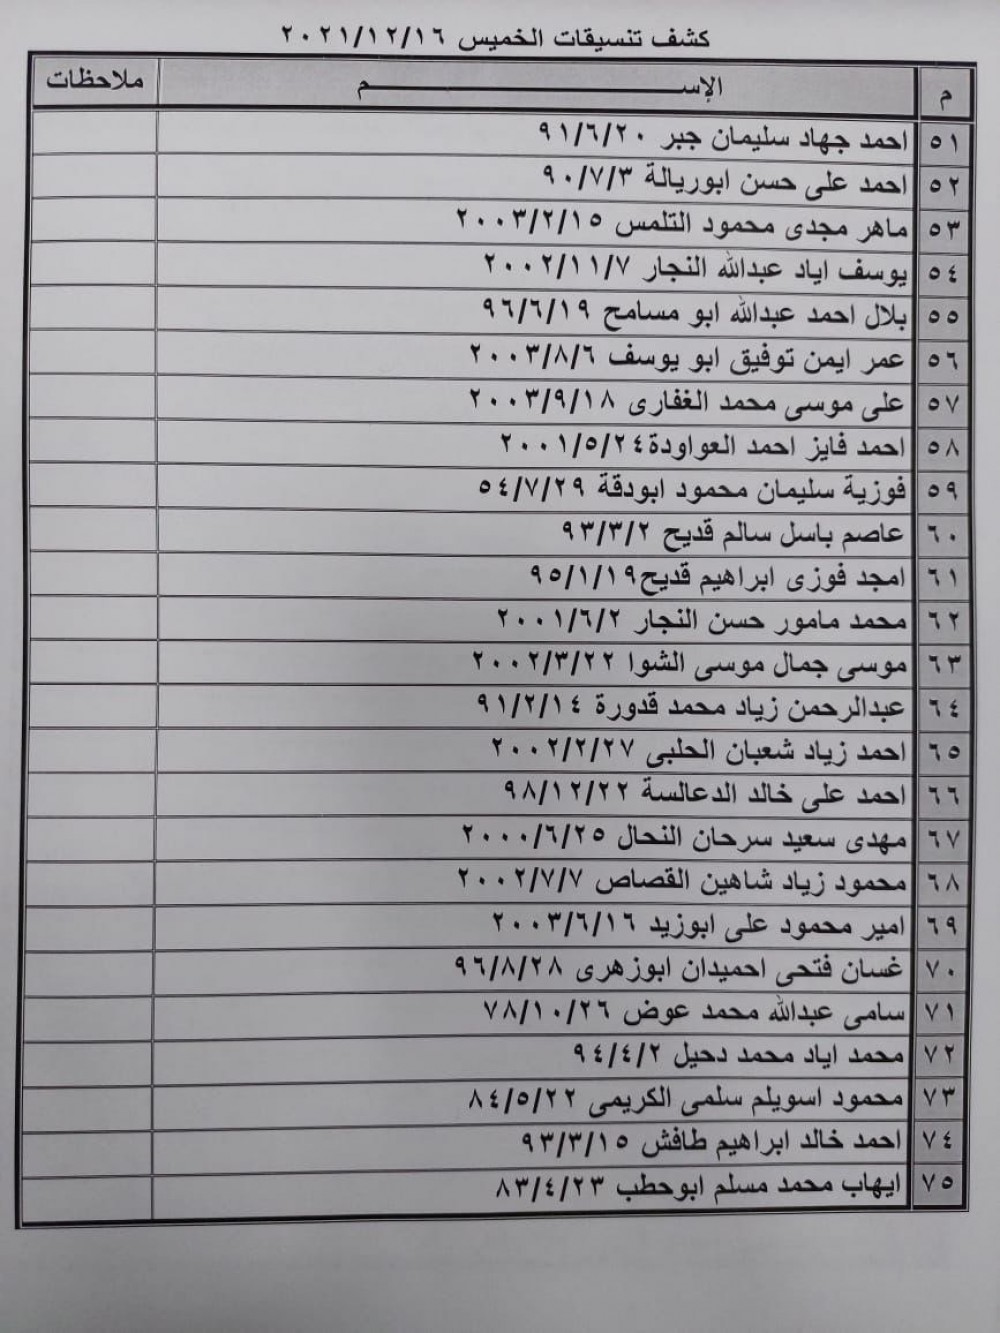 كشف تنسيقات الخميس ٢٠٢١/١٢/١٦
م الإســــم ملاحظات
٥١ احمد جهاد سليمان جبر ٩١/٦/٢٠
٥٢ احمد على حسن ابوريالة ٩٠/٧/٣
٥٣ ماهر مجدى محمود التلمس ٢٠٠٣/٢/١٥
٥٤ يوسف اياد عبدالله النجار ٢٠٠٢/١١/٧
٥٥ بلال احمد عبدالله ابو مسامح ٩٦/٦/١٩
٥٦ عمر ايمن توفيق ابو يوسف ٢٠٠٣/٨/٦
٥٧ على موسى محمد الغفارى ٢٠٠٣/٩/١٨
٥٨ احمد فايز احمد العواودة ٢٠٠١/٥/٢٤
٥٩ فوزية سليمان محمود ابودقة ٥٤/٧/٢٩
٦٠ عاصم باسل سالم قديح ٩٣/٣/٢
٦١ امجد فوزى ابراهيم قديح ٩٥/١/١٩
٦٢ محمد مامور حسن النجار ٢٠٠١/٦/٢
٦٣ موسى جمال موسى الشوا ٢٠٠٢/٣/٢٢
٦٤ عبدالرحمن زياد محمد قدورة ٩١/٢/١٤
٦٥ احمد زياد شعبان الحلبى ٢٠٠٢/٢/٢٧
٦٦ احمد على خالد الدعالسة ٩٨/١٢/٢٢
٦٧ مهدى سعيد سرحان النحال ٢٠٠٠/٦/٢٥
٦٨ محمود زياد شاهين القصاص ٢٠٠٢/٧/٧
٦٩ امير محمود على ابوزيد ٢٠٠٣/٦/١٦
٧٠ غسان فتحى احميدان ابوزهرى ٩٦/٨/٢٨
٧١ سامى عبدالله محمد عوض ٧٨/١٠/٢٦
٧٢ محمد اياد محمد دحيل ٩٤/٤/٢
٧٣ محمود اسويلم سلمى الكريمى ٨٤/٥/٢٢
٧٤ احمد خالد ابراهيم طافش ٩٣/٣/١٥
٧٥ ايهاب محمد مسلم ابوحطب ٨٣/٤/٢٣